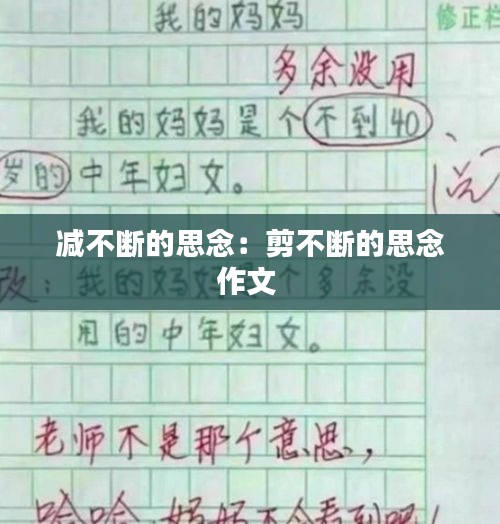 我的妈妈
修正栏
多余没用
我的妈妈是个不到40、
岁的中年妇女。
减不断的思念：剪不断的思念
作文
改：我的妈妈是个多余没
用的中年妇女。
老师不是那个意思，
哈哈，妈妈不会看到吧！